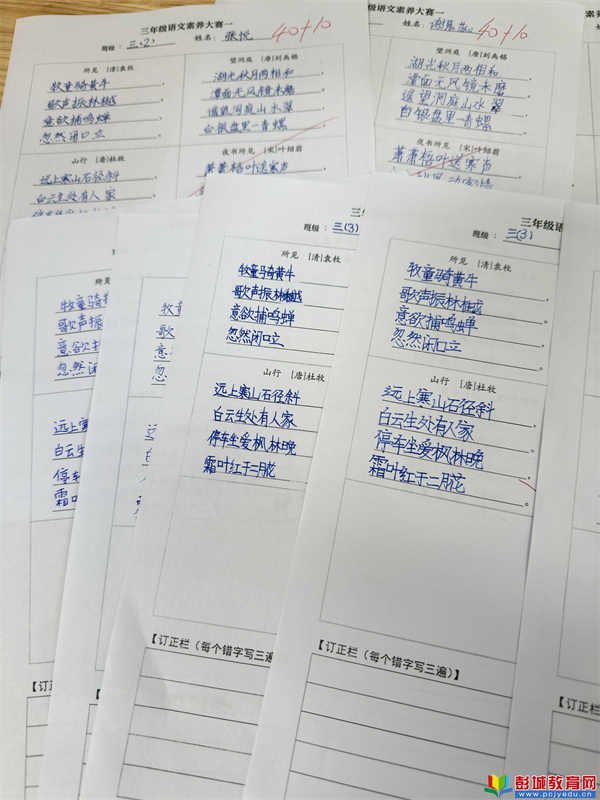 三年级语文素养大赛一
班级：三(2) 姓名：张悦 40+10
所见 [清]袁枚
牧童骑黄牛
歌声振林樾
意欲捕鸣蝉
忽然闭口立
山行 [唐]杜牧
远上寒山石径斜
白云生处有人家
望洞庭 [唐]刘禹锡
湖光秋月两相和
潭面无风镜未磨
遥望洞庭山水翠
白银盘里一青螺
夜书所见 [宋]叶绍翁
萧萧梧叶送寒声
级语文素养大赛一
姓名： 40+10
望洞庭 [唐]刘禹锡
湖光秋月两相和
潭面无风镜未磨
遥望洞庭山水翠
白银盘里一青螺
夜书所见 [宋]叶绍翁
萧萧梧叶送寒声
班级
所见
牧童骑黄
歌声振
意欲捕
忽然闭
山行
远上寒
白云生
停车
霜叶
【订正
班级
牧
歌
意
忽
【订正栏
三年级
班级：三(3)
所见 [清]袁枚
牧童骑黄牛
歌声振林樾
意欲捕鸣蝉
忽然闭口立。
山行 [唐]杜牧
远上寒山石径斜
白云生处有人家
停车坐爱枫林晚
霜叶红于二月花
【订正栏（每个错字写三遍
三年级语
班级：三(3)
所见 [清]袁枚
牧童骑黄牛
歌声振林樾
意欲捕鸣蝉
忽然闭口立。
山行 [唐]杜牧
远上寒山石径斜
白云生处有人家
停车坐爱枫林晚
霜叶红于二月花。
【订正栏（每个错字写三遍）】
彭城教育网
www.pcjyedu.cn